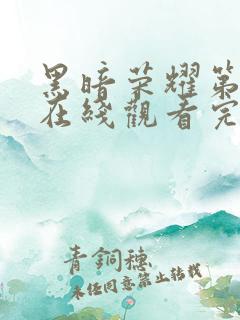 黑暗荣耀第
在线觀看完
青銅穗
未经同意禁止转载